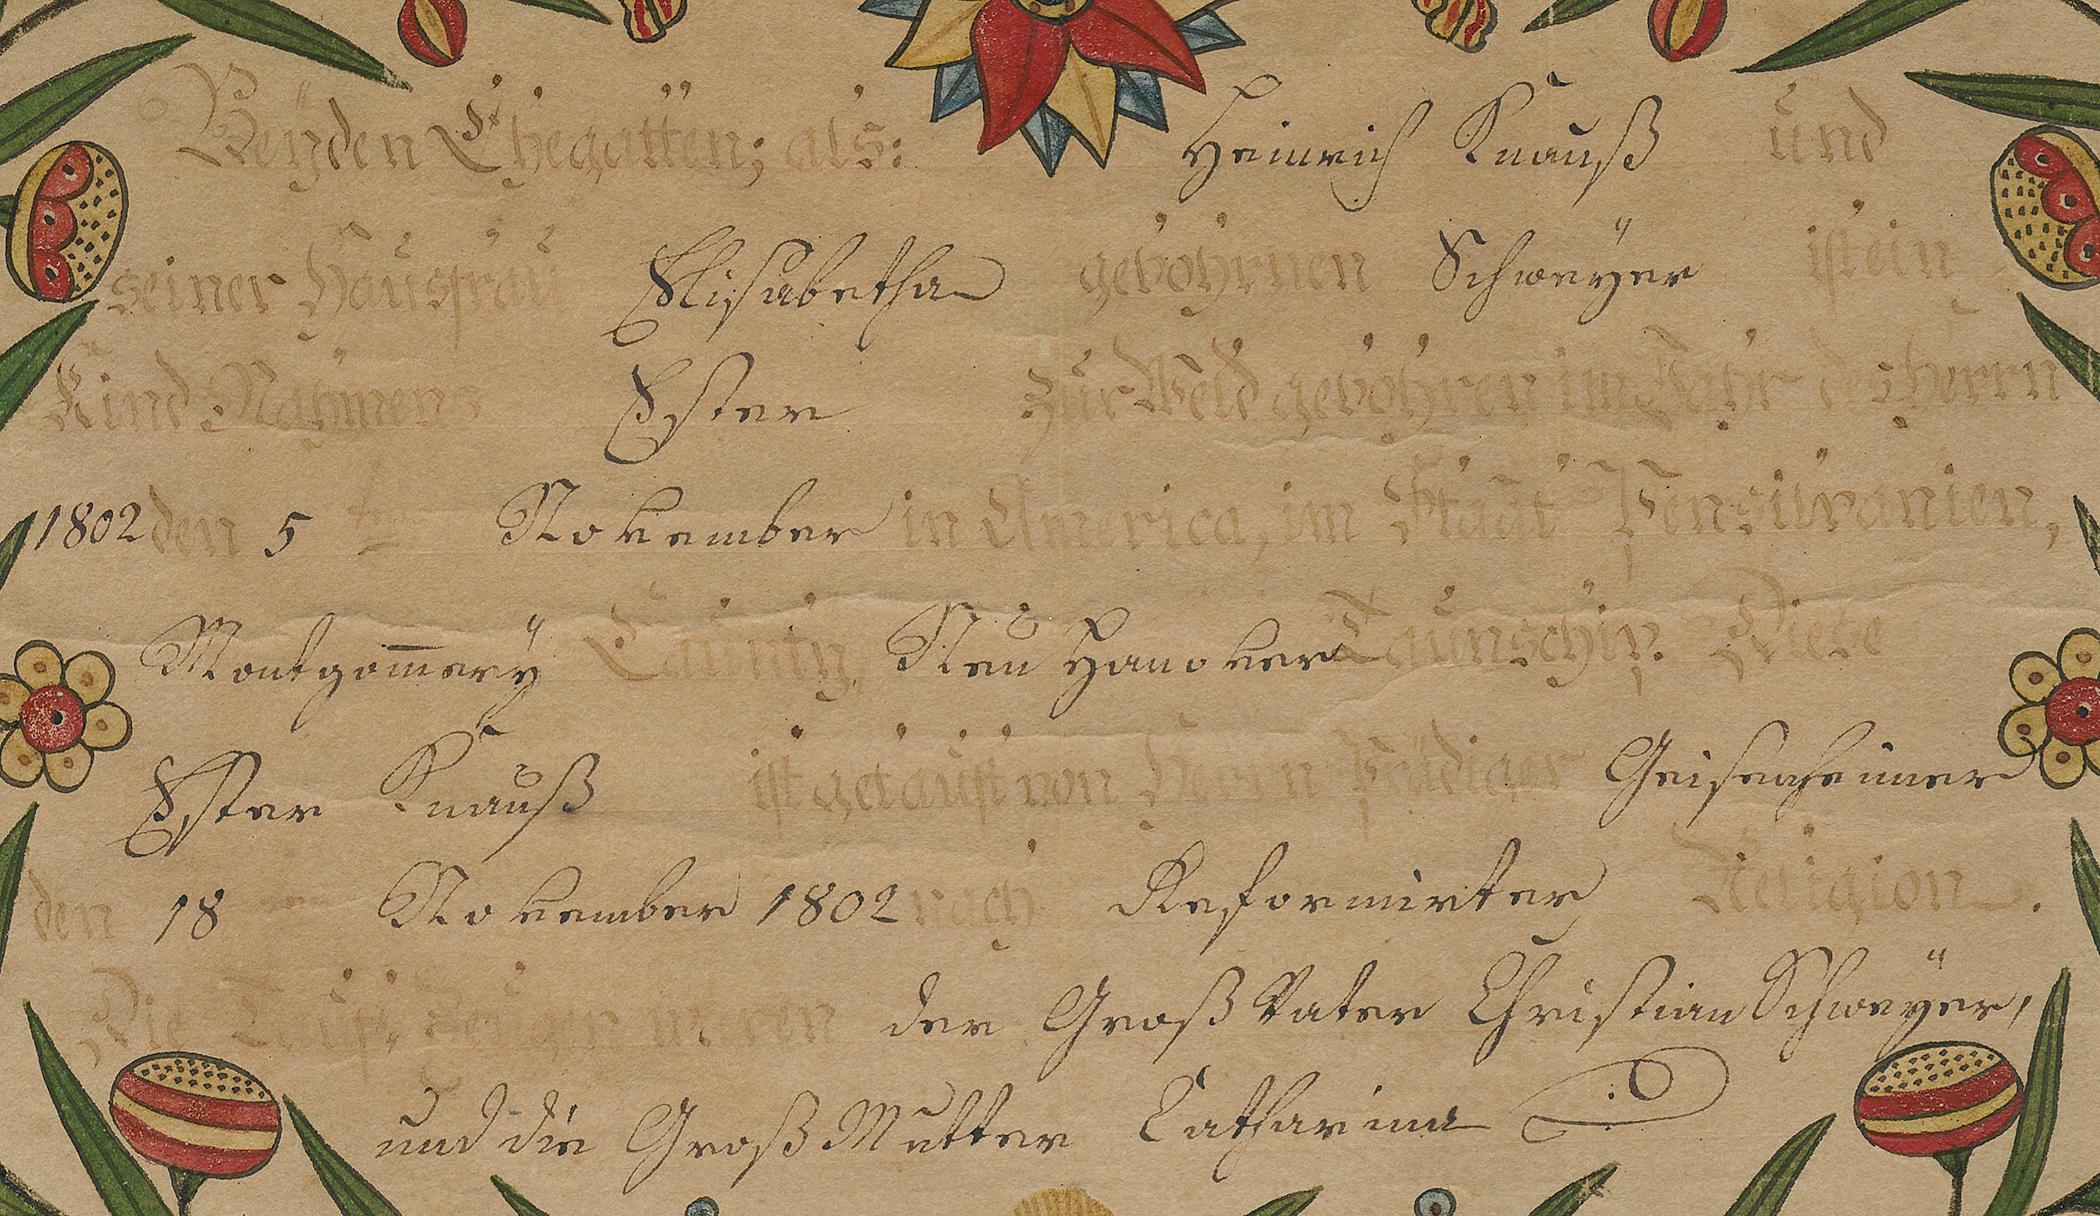 Beÿden Ehegatten; als: Heinrich Knauß und
seiner Hausfrau Elisabetha gebohrnen Schweÿer ist ein
Kind Nahmens Ester zur Weld gebohren im Jahr des herrn
1802 den 5 ten November in America, im Staat Pensilvanien,
Montgom̅erÿ Caunty, Neu Hanover Taunschip. Diese
Ester Knauß ist getauft von Herrn Prädiger Geisenheimer
den 18 ten November 1802 nach Reformirter Religion.
Die Tauf-Zeugen waren der Groß Vater Christian Schweÿer,
und die Groß Mutter Catharina